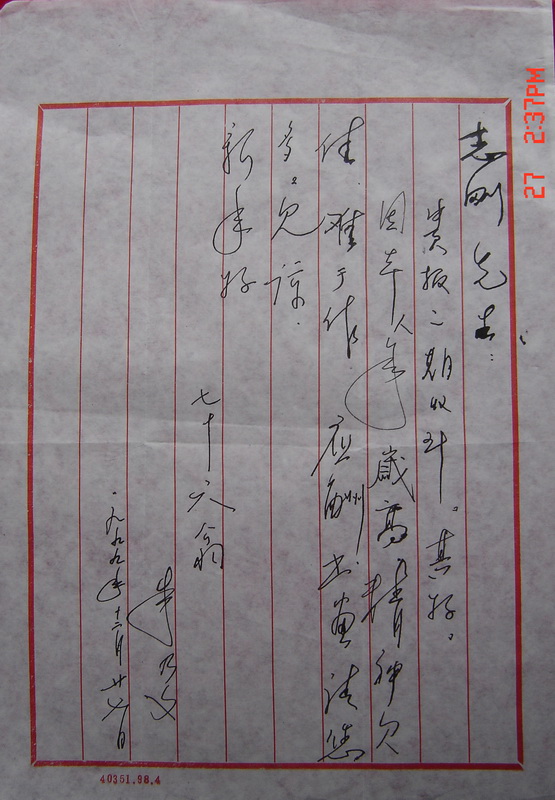 志刚先生:
贵报二期收到。甚好。
因本人年岁高精神欠
佳.难于作.应酬书画请您
多多见谅.
新年好
七十六翁
李乃文
一九九九年十二月廿七日
40351.98.4
27 2:37PM